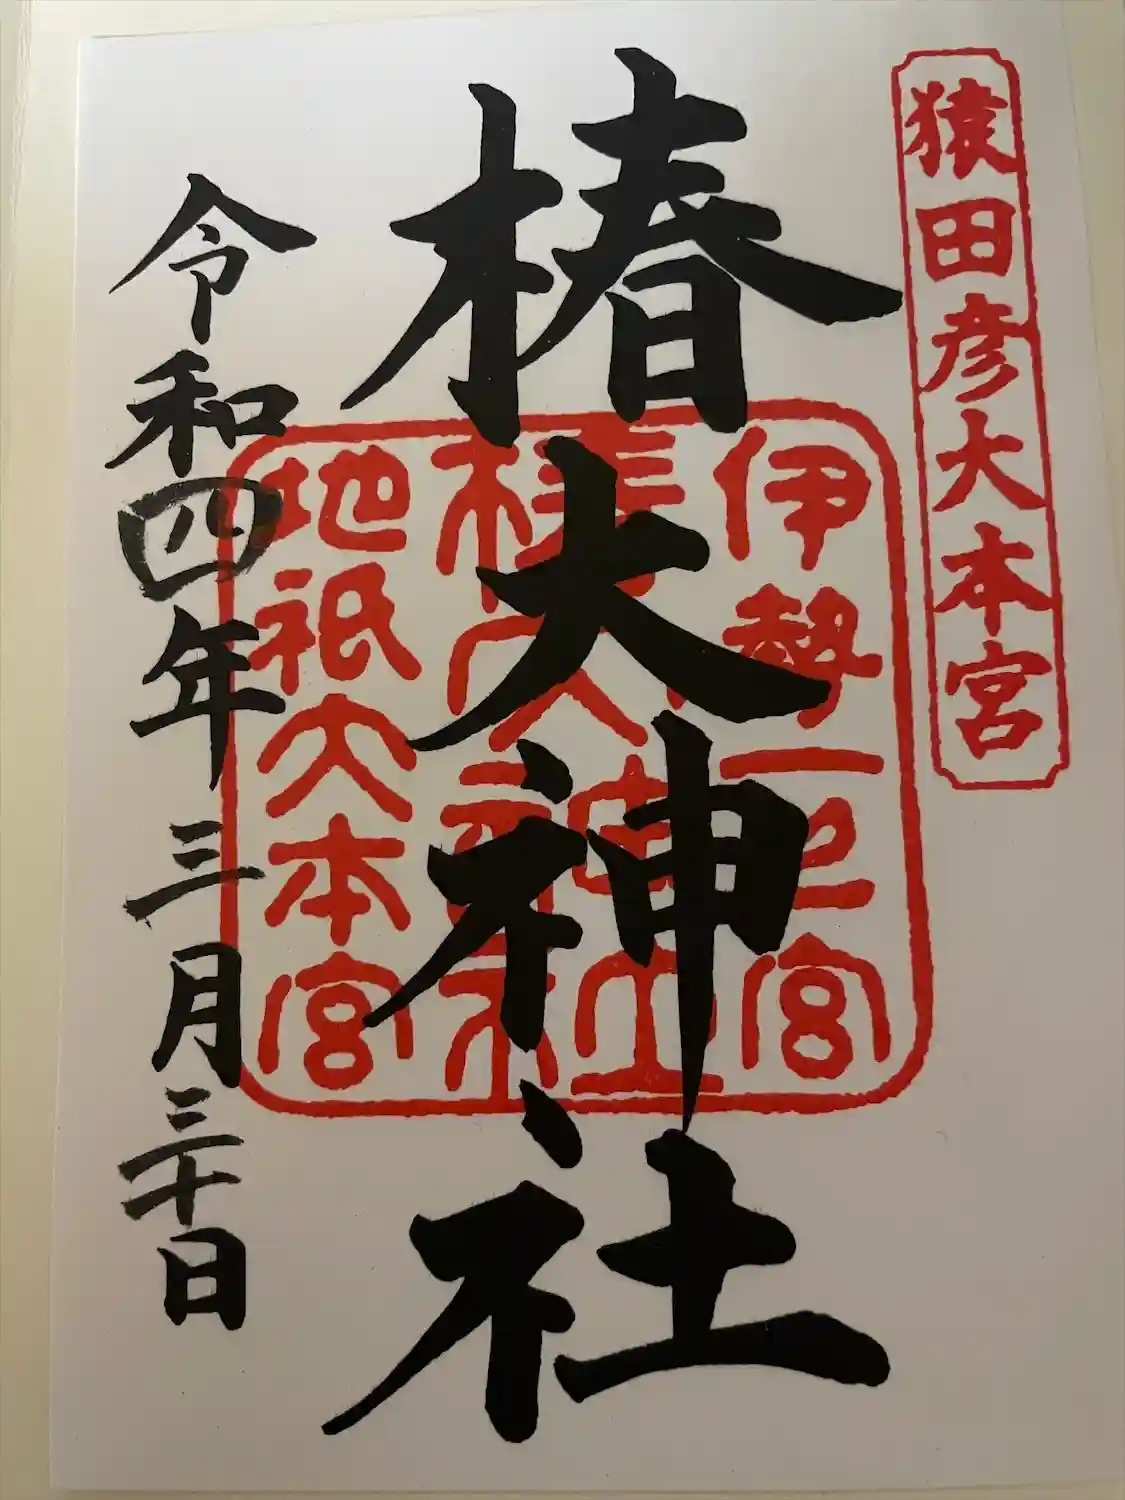 猿田彦大本宮
椿大神社
伊勢一之宮
椿大神社
地祇大本宮
令和四年三月三十日